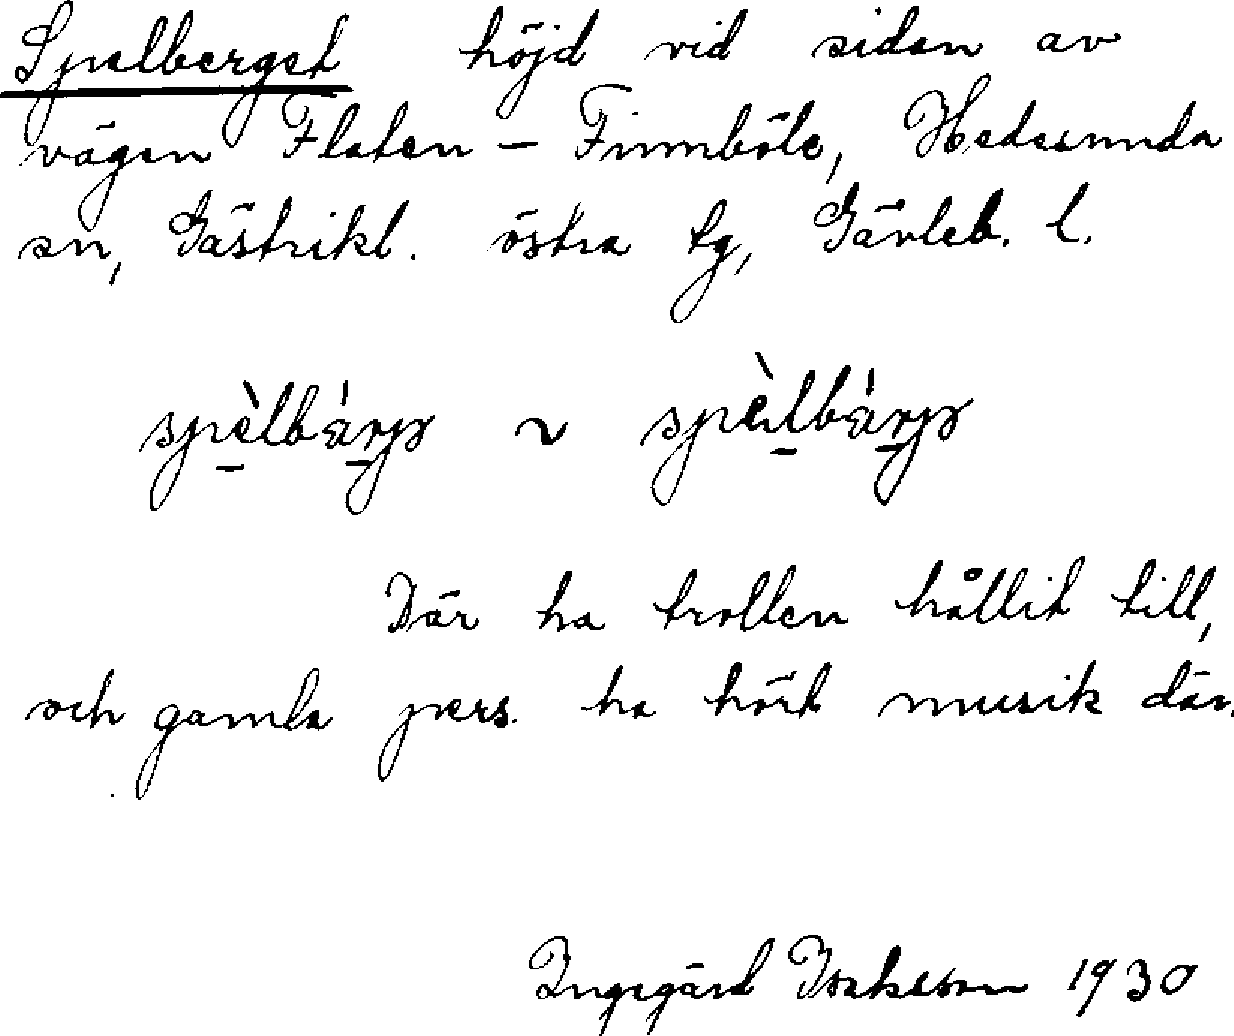 Spelberget höjd vid sidan av
vägen Flaten - Finnböle, Hedesunda
sn, Gästrikl. östra tg, Gävleb. l.
Där ha trollen hållit till,
och gamla pers. ha hört musik där.
Ingegärd Isaksson 1930